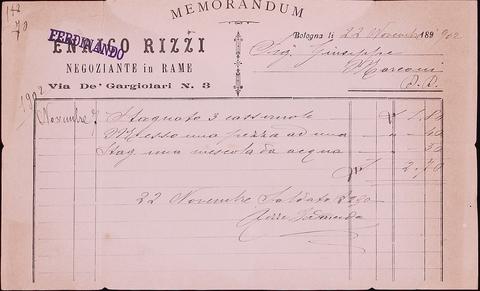 MEMORANDUM
FERDINANDO
ENRICO RIZZI
NEGOZIANTE in RAME
Via De' Gargiolari N. 3
Bologna li 22 Novembre 1902
Sig. Giuseppe
Marconi
1902
Novembre Stagnato 3 casseruole
Messo una pezza ad una
Stag una mescola da acqua
2,70
22 Novembre Saldato